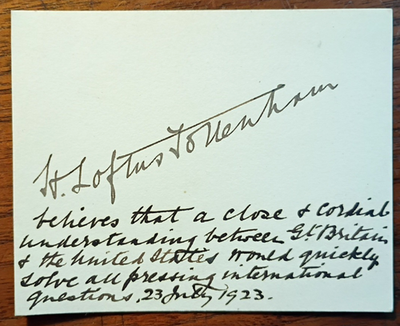 H. Loftus Tottenham
believes that a close & cordial
understanding between Gt. Britain
& the United States would quickly
solve all pressing international
questions, 23 July, 1923.